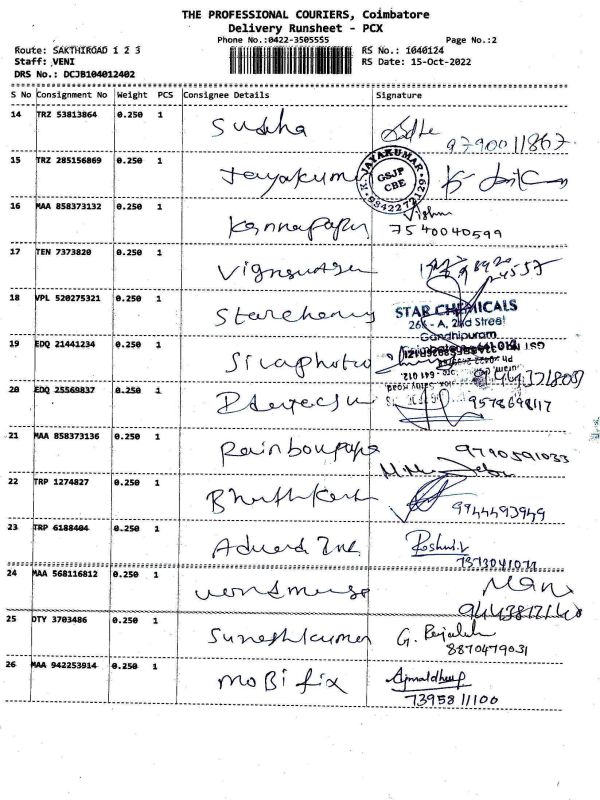 THE PROFESSIONAL COURIERS, Coimbatore
Delivery Runsheet - PCX
Phone No.:0422-3505555 Page No.:2
Route: SAKTHIROAD 1 2 3 RS No.: 1040124
Staff: VENI RS Date: 15-Oct-2022
DRS No.: DCJB104012402
S No Consignment No Weight PCS Consignee Details Signature
14 TRZ 53813864 0.250 1 Sudha 9790011867
15 TRZ 285156869 0.250 1 Jeyakumar K. JAYAKUMAR GSJP CBE
16 MAA 858373132 0.250 1 Kannapapu Vishnu
7540040599
17 TEN 7373820 0.250 1
18 VPL 520275321 0.250 1 Starchemy STAR CHEMICALS
2nd Street
Gandhipuram
19 EDQ 21441234 0.250 1 Sivaphoto
20 EDQ 25569837 0.250 1 9578698117
21 MAA 858373136 0.250 1 Rainboupapa 9790591033
22 TRP 1274827 0.250 1 9944493949
23 TRP 6188404 0.250 1 Aduard Inc Roshni.V
7373041071
24 MAA 568116812 0.250 1 Mani
25 DTY 3703486 0.250 1 Sureshkumar G.
8870479031
26 MAA 942253914 0.250 1 MoBi fix
7395811100